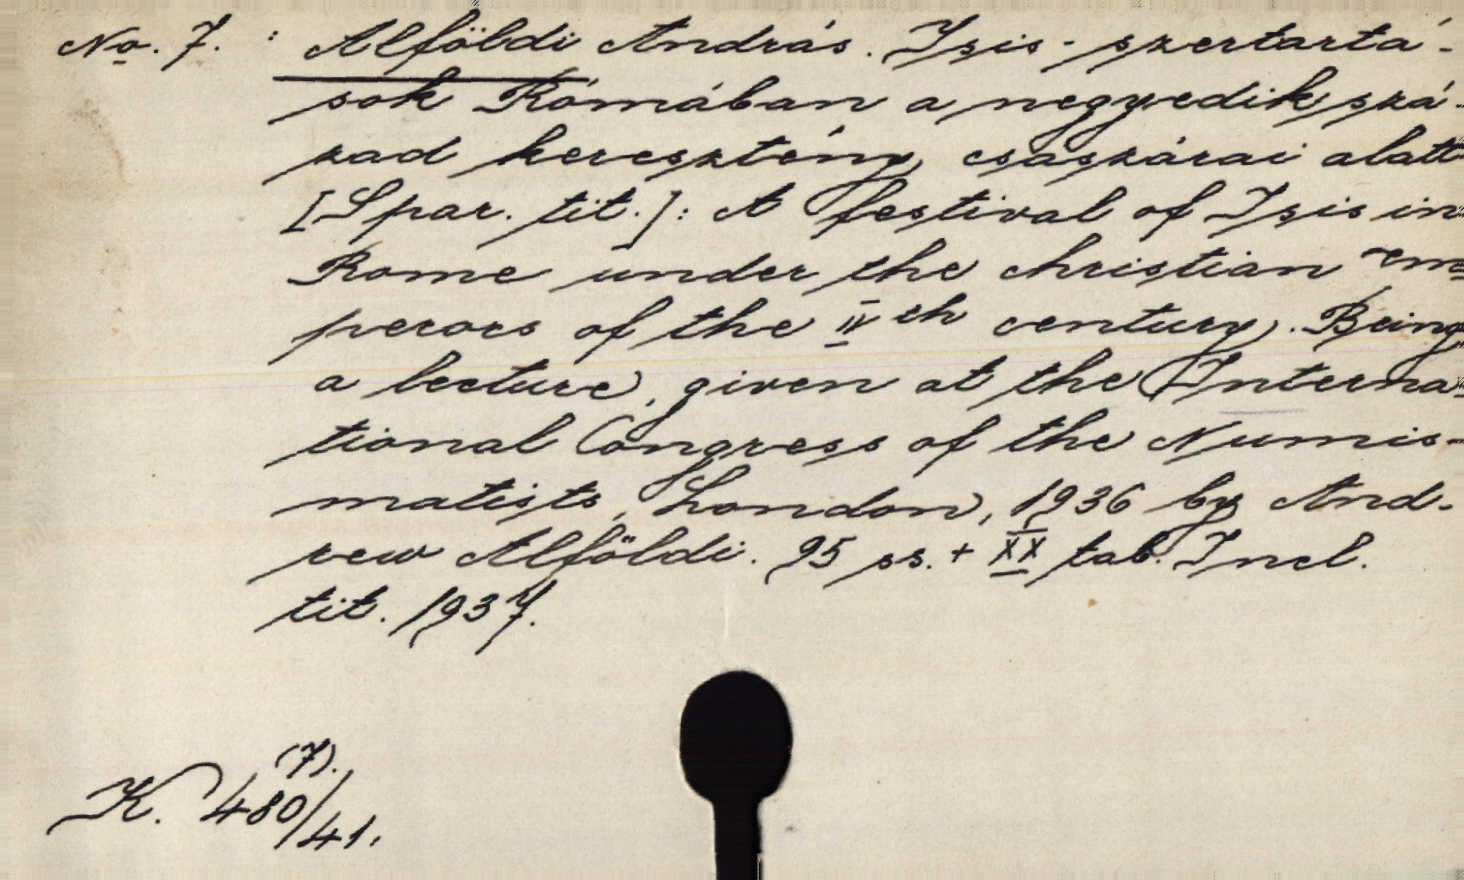 No. 7. : Alföldi András. Isis-szertartá-
sok Rómában a negyedik szá-
zad keresztény császárai alatt
[Spar. tit.]: A festival of Isis in
Rome under the christian em-
perors of the IVth century. Being
a lecture, given at the Interna-
tional Congress of the Numis-
matists, London, 1936 by And-
rew Alföldi. 95 ss. + XX tab. Incl.
tit. 1937.
(7).
K. 480/41.